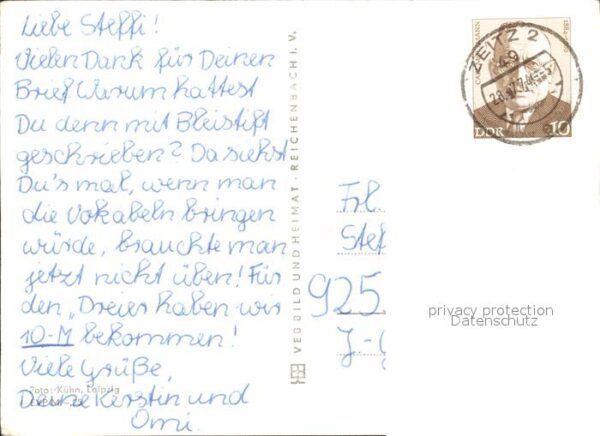 Liebe Steffi!
Vielen Dank für Deinen
Brief Warum hattest
Du denn mit Bleistift
geschrieben? Da siehst
Du's mal, wenn man
die Vokabeln bringen
würde, brauchte man
jetzt nicht üben! Für
den „Dreier haben wir
10,-M bekommen!
Viele Grüße,
Deine Kerstin und
Omi.
Foto: Kühn, Leipzig
VEB BILD UND HEIMAT · REICHENBACH I. V.
ZEITZ 2
49
DDR
10
Frl.
Stef
925
J-
privacy protection
Datenschutz